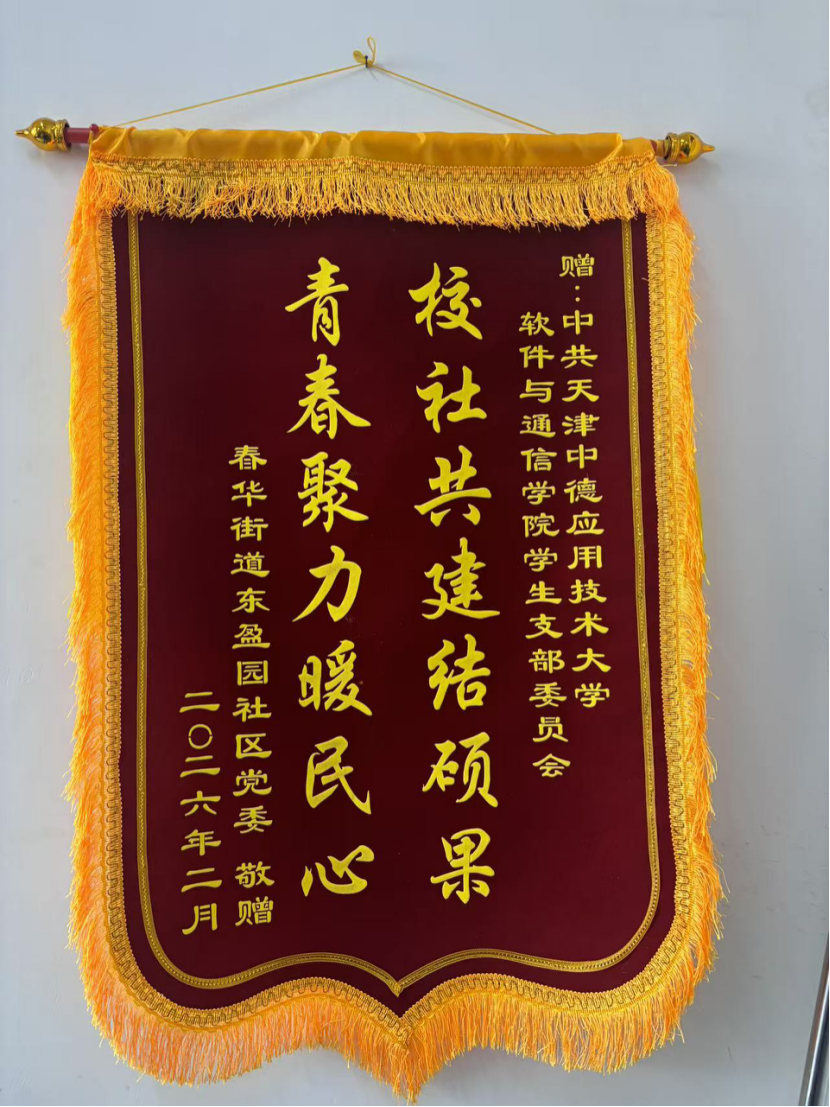 赠:中共天津中德应用技术大学
软件与通信学院学生支部委员会
校社共建结硕果
青春聚力暖民心
春华街道东盈园社区党委 敬赠
二〇二六年二月